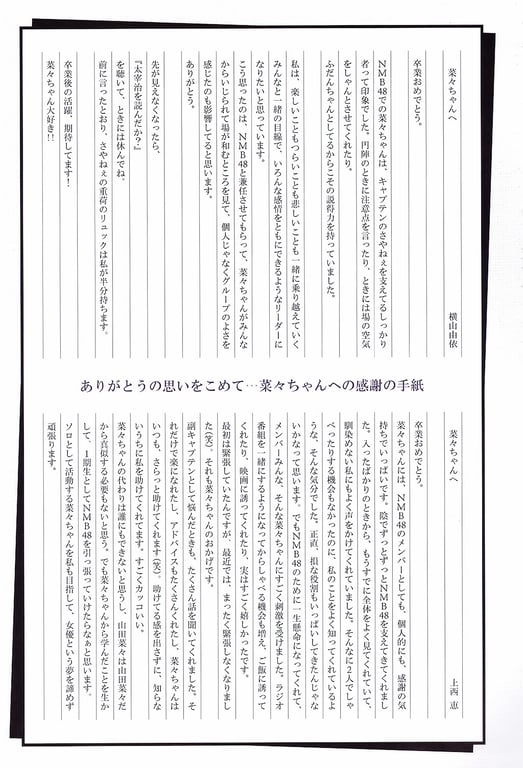 菜々ちゃんへ
横山由依
卒業おめでとう。
NMB48での菜々ちゃんは、キャプテンのさやねぇを支えてるしっかり
者って印象でした。円陣のときに注意点を言ったり、ときには場の空気
をしゃんとさせてくれたり。
ふだんちゃんとしてるからこその説得力を持っていました。
私は、楽しいこともつらいことも悲しいことも一緒に乗り越えていく
みんなと一緒の目線で、いろんな感情をともにできるようなリーダーに
なりたいと思っています。
こう思ったのは、NMB48と兼任させてもらって、菜々ちゃんがみんな
からいじられて場が和むところを見て、個人じゃなくグループのよさを
感じたのも影響してると思います。
ありがとう。
先が見えなくなったら、
『太宰治を読んだか?』
を聴いて、ときには休んでね。
前に言ったとおり、さやねぇの重荷のリュックは私が半分持ちます。
卒業後の活躍、期待してます!
菜々ちゃん大好き!!
ありがとうの思いをこめて…菜々ちゃんへの感謝の手紙
菜々ちゃんへ
上西 恵
卒業おめでとう。
菜々ちゃんには、NMB48のメンバーとしても、個人的にも、感謝の気
持ちでいっぱいです。陰でずっとずっとNMB48を支えてきてくれまし
た。入ったばかりのときから、もうすでに全体をよく見てくれていて、
馴染めない私にもよく声をかけてくれていました。そんなに2人でしゃ
べったりする機会もなかったのに、私のことをよく知ってくれているよ
うな、そんな気分でした。正直、損な役割もいっぱいしてきたんじゃな
いかなって思います。でもNMB48のために一生懸命になってくれて、
メンバーみんな、そんな菜々ちゃんにすごく刺激を受けました。ラジオ
番組を一緒にするようになってからしゃべる機会も増え、ご飯に誘って
くれたり、映画に誘ってくれたり、実はすごく嬉しかったです。
最初は緊張していたんですが、最近では、まったく緊張しなくなりまし
た(笑)。それも菜々ちゃんのおかげです。
副キャプテンとして悩んだときも、たくさん話を聞いてくれました。そ
れだけで楽になれたし、アドバイスもたくさんくれたし、菜々ちゃんは
いつも、さらっと助けてくれます(笑)。助けてる感を出さずに、知らな
いうちに私を助けてくれてます。すごくカッコいい。
菜々ちゃんの代わりは誰にもできないと思うし、山田菜々は山田菜々だ
から真似する必要もないと思う。でも菜々ちゃんから学んだことを生か
して、1期生としてNMB48を引っ張っていけたらなぁと思います。
ソロとして活動する菜々ちゃんを私も目指して、女優という夢を諦めず
頑張ります。